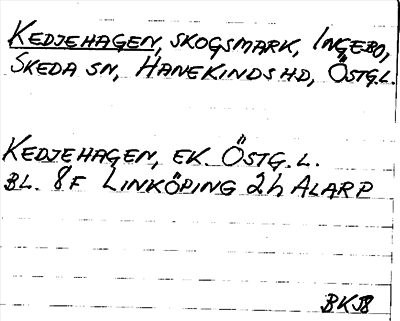 KEDJEHAGEN, SKOGSMARK, INGEBO,
SKEDA SN, HANEKINDS HD, ÖSTG.L.
KEDJEHAGEN, EK. ÖSTG. L.
BL. 8F LINKÖPING 2h ALARP
BKJ8